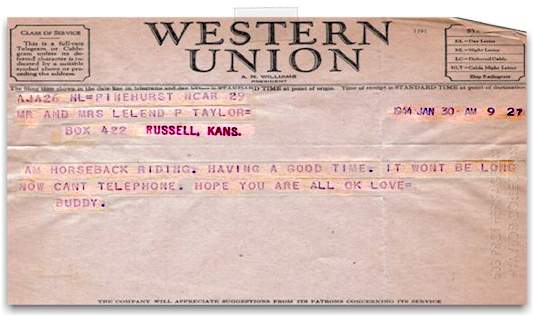 CLASS OF SERVICE
This is a full-rate
Telegram or Cable-
gram unless its de-
ferred character is in-
dicated by a suitable
symbol above or pre-
ceding the address.
WESTERN
UNION
A. N. WILLIAMS
PRESIDENT
1201
SYMBOLS
DL=Day Letter
NL=Night Letter
LC=Deferred Cable
NLT=Cable Night Letter
Ship Radiogram
The filing time shown in the date line on telegrams and day letters is STANDARD TIME at point of origin. Time of receipt is STANDARD TIME at point of destination
AJA26 NL=PINEHURST NCAR 29
MR AND MRS LELEND P TAYLOR=
1944 JAN 30 AM 9 27
BOX 422 RUSSELL, KANS.
AM HORSEBACK RIDING. HAVING A GOOD TIME. IT WONT BE LONG
NOW CANT TELEPHONE. HOPE YOU ARE ALL OK LOVE=
BUDDY.
THE COMPANY WILL APPRECIATE SUGGESTIONS FROM ITS PATRONS CONCERNING ITS SERVICE